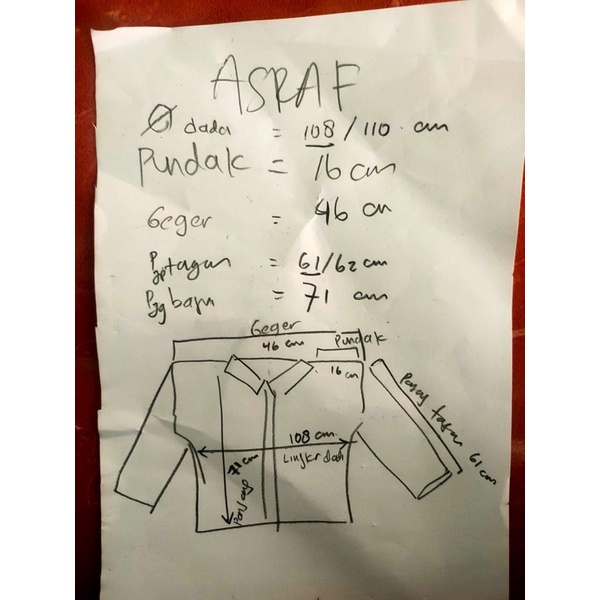 ASRAF
Ø dada = 108 / 110 cm
Pundak = 16 cm
Geger = 46 cm
Pjg tagan = 61/62 cm
Pjg baju = 71 cm
Geger
46 cm
Pundak
16 cm
108 cm
Lingkr dah
71 cm
61 cm